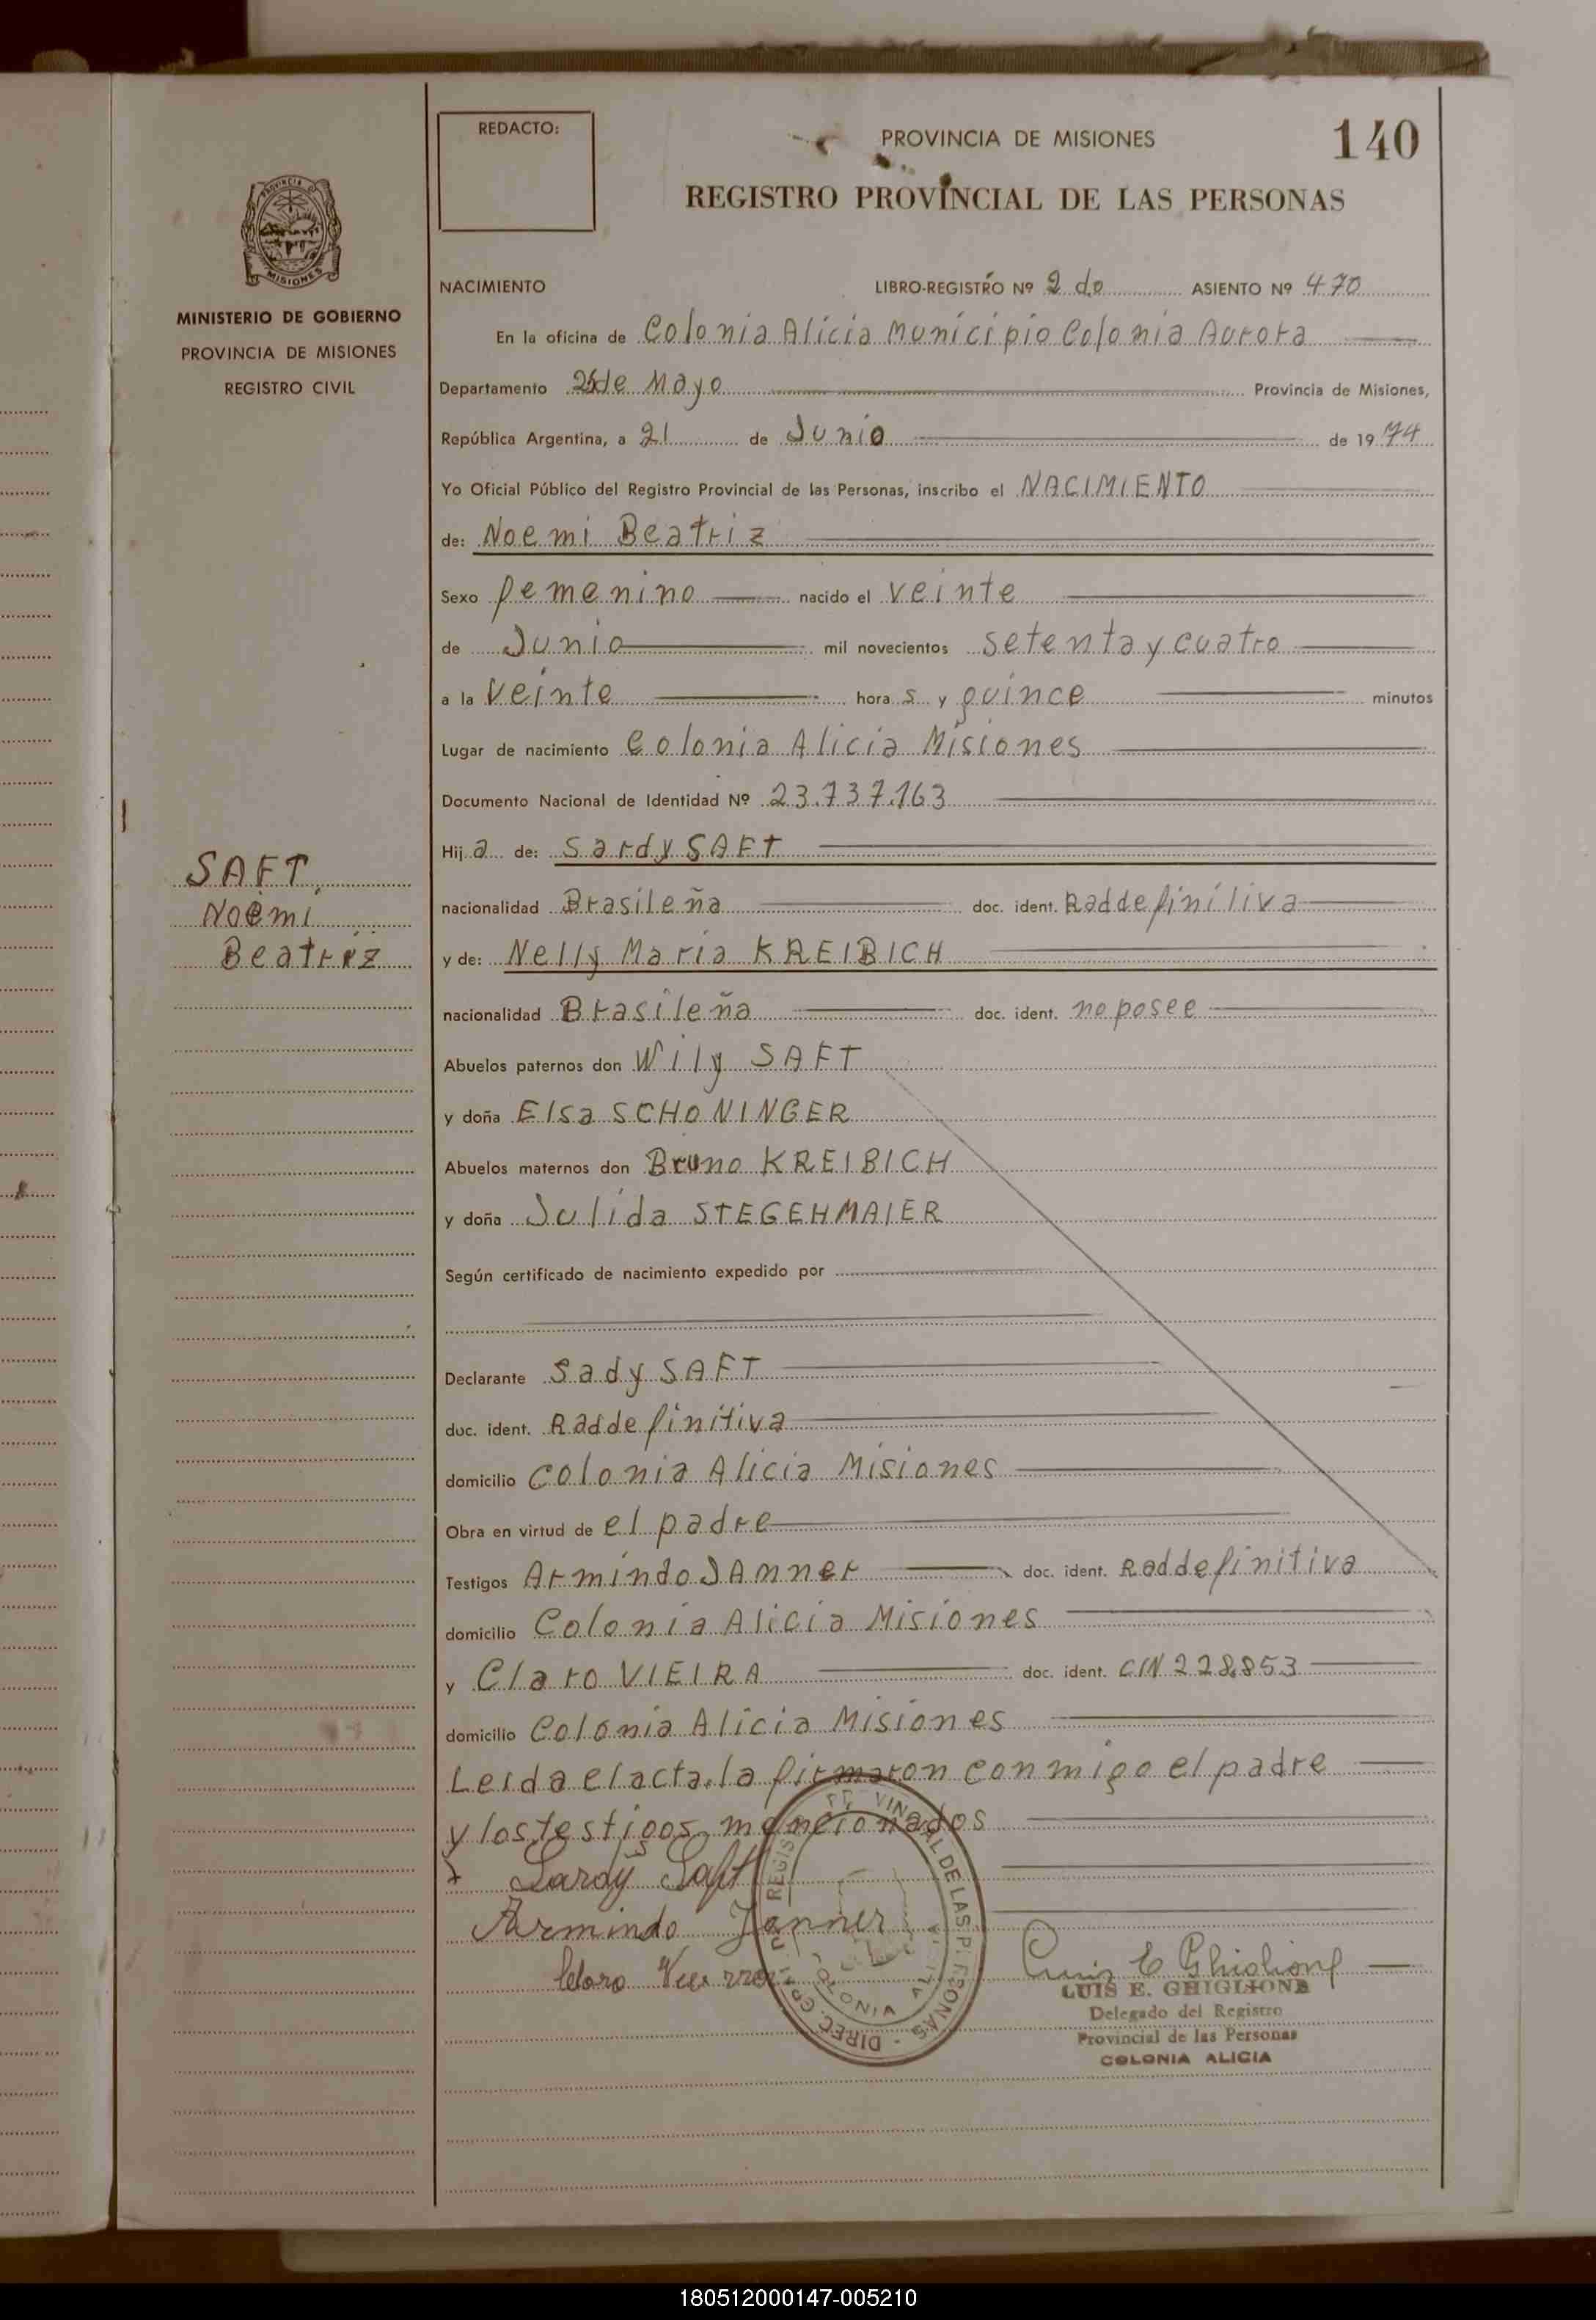 REDACTO:
PROVINCIA DE MISIONES
140
REGISTRO PROVINCIAL DE LAS PERSONAS
PROVINCIA D
MISIONES
MINISTERIO DE GOBIERNO
PROVINCIA DE MISIONES
REGISTRO CIVIL
NACIMIENTO LIBRO-REGISTRO Nº 2 do ASIENTO Nº 470
En la oficina de Colonia Alicia Municipio Colonia Aurora
Departamento 25 de Mayo Provincia de Misiones,
República Argentina, a 21 de Junio de 19 74
Yo Oficial Público del Registro Provincial de las Personas, inscribo el NACIMIENTO
de: Noemi Beatriz
Sexo femenino nacido el veinte
de Junio mil novecientos setenta y cuatro
a la veinte hora s y quince minutos
Lugar de nacimiento Colonia Alicia Misiones
Documento Nacional de Identidad Nº 23.737.163
Hij a de: Sardy SAFT
SAFT,
Noemi
Beatriz
nacionalidad Brasileña doc. ident. Raddefinitiva
y de: Nelly Maria KREIBICH
nacionalidad Brasileña doc. ident. no posee
Abuelos paternos don Wily SAFT
y doña Elsa SCHONINGER
Abuelos maternos don Bruno KREIBICH
y doña Julida STEGEHMAIER
Según certificado de nacimiento expedido por
Declarante Sady SAFT
doc. ident. Raddefinitiva
domicilio Colonia Alicia Misiones
Obra en virtud de el padre
Testigos Armindo JANNER doc. ident. Raddefinitiva
domicilio Colonia Alicia Misiones
y Claro VIEIRA doc. ident. CIN 228.853
domicilio Colonia Alicia Misiones
Leida el acta, la firmaron conmigo el padre
y los testigos mencionados
Sardy Saft
Armindo Janner
Claro
Luis E Ghiglione
LUIS E. GHIGLIONE
Delegado del Registro
Provincial de las Personas
COLONIA ALICIA
180512000147-005210